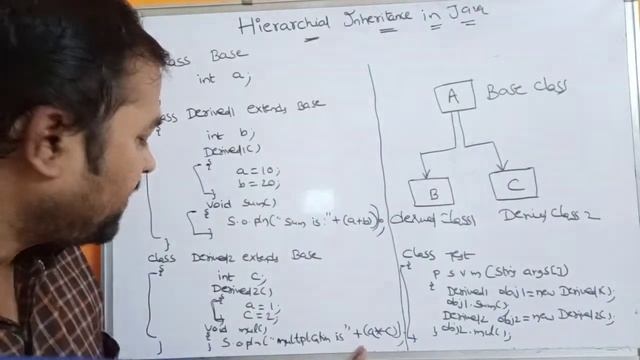 Hierarchial Inheritance in Java
class Base
int a;
}
class Derived1 extends Base
{
int b;
Derived1()
{
a=10;
b=20;
}
void sum()
{
S.o.pln("Sum is:"+(a+b));
}
}
class Derived2 extends Base
{
int c;
Derived2()
{
a=1;
c=2;
}
void mul()
{ S.o.pln("multplication is"+(a*c);
}
A Base class
B C
derived class1 Derived class 2
class Test
{
p s v m (String args[])
{ Derived1 obj1=new Derived1();
obj1.sum();
Derived2 obj2=new Derived2();
} obj2.mul();
}